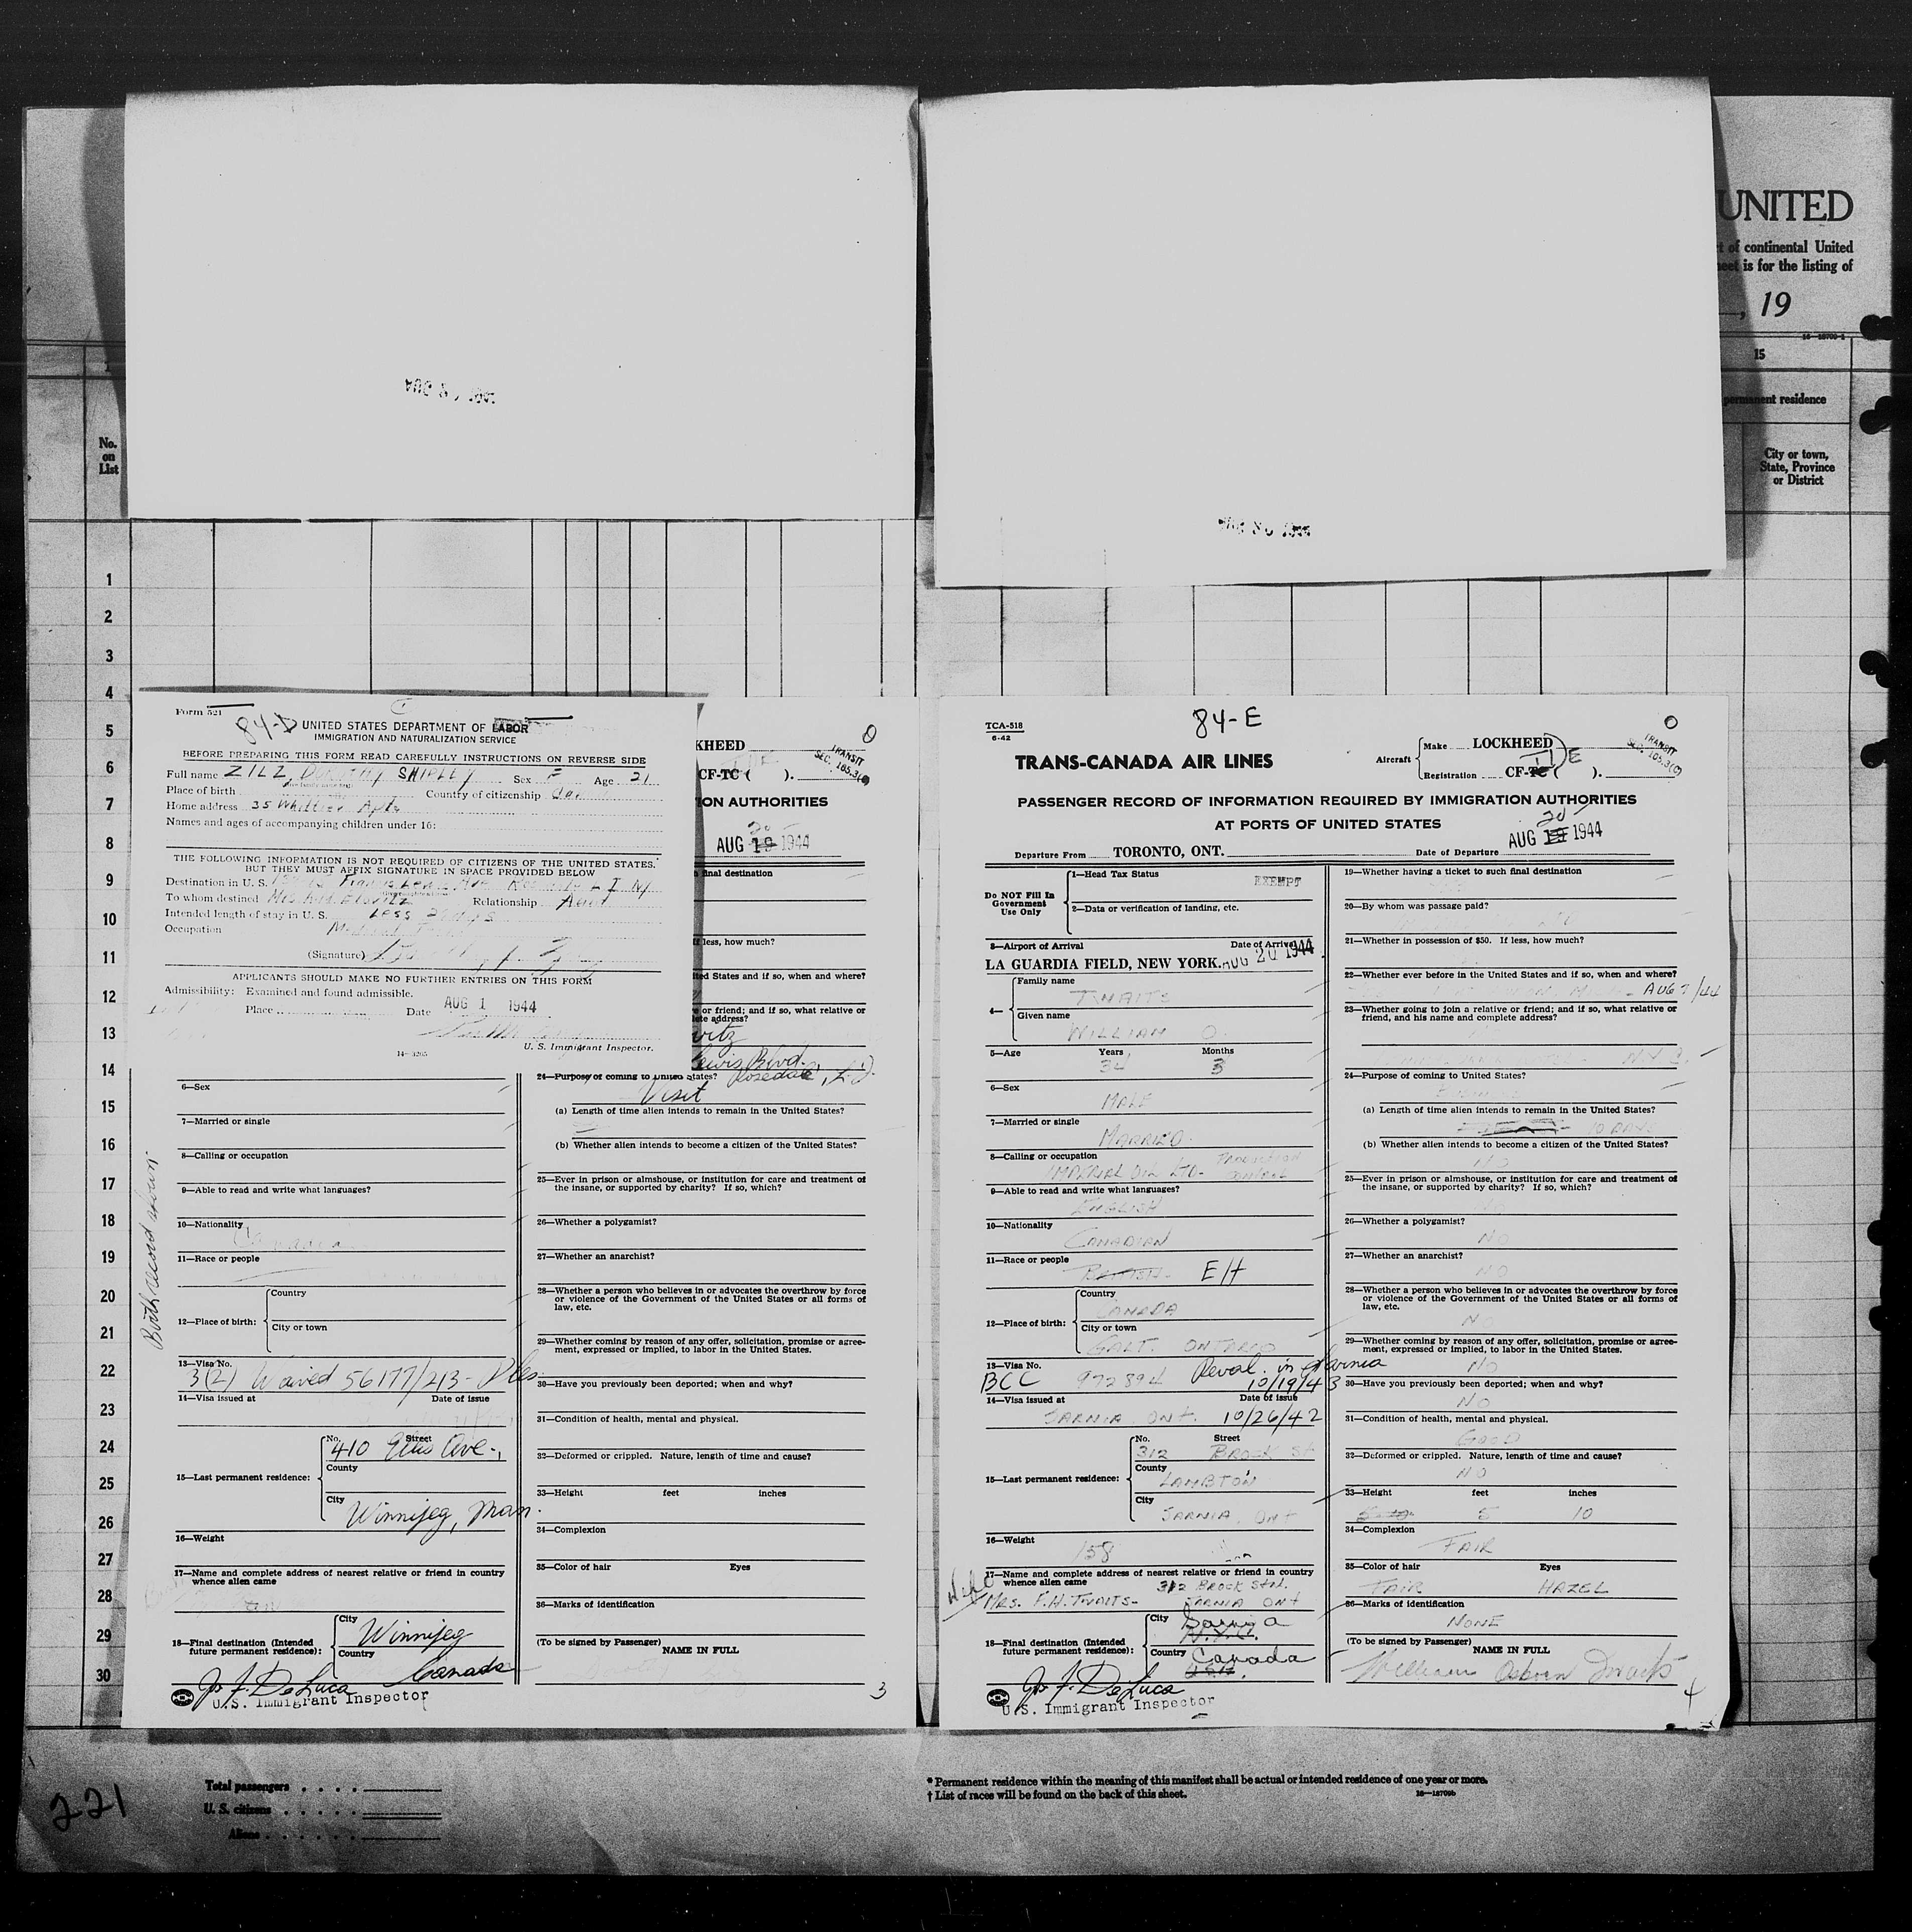 UNITED
t of continental United
eet is for the listing of
, 19
16—18709-1
15
permanent residence
No.
on
List
City or town,
State, Province
or District
1
2
3
4
5
6
7
8
9
10
11
12
13
14
15
16
17
18
19
20
21
22
23
24
25
26
27
28
29
30
Form 521
84-D UNITED STATES DEPARTMENT OF LABOR
IMMIGRATION AND NATURALIZATION SERVICE
BEFORE PREPARING THIS FORM READ CAREFULLY INSTRUCTIONS ON REVERSE SIDE
Full name ZILZ, SHIRLEY Sex F Age 21
Place of birth Country of citizenship
Home address 35 Whittier Apts
Names and ages of accompanying children under 16:
THE FOLLOWING INFORMATION IS NOT REQUIRED OF CITIZENS OF THE UNITED STATES.
BUT THEY MUST AFFIX SIGNATURE IN SPACE PROVIDED BELOW
Destination in U. S.
To whom destined Relationship Aunt
Intended length of stay in U. S. Less
Occupation
(Signature)
APPLICANTS SHOULD MAKE NO FURTHER ENTRIES ON THIS FORM
Admissibility: Examined and found admissible.
Place Date AUG 1 1944
U. S. Immigrant Inspector.
KHEED
TRANSIT
SEC. 165.3(c)
CF-TC ( ).
ION AUTHORITIES
20
AUG 19 1944
final destination
If less, how much?
ited States and if so, when and where?
e or friend; and if so, what relative or
lete address?
witz
Lewis Blvd.
24—Purpose of coming to United States? Rosedale, L.I.
Visit
(a) Length of time alien intends to remain in the United States?
(b) Whether alien intends to become a citizen of the United States?
25—Ever in prison or almshouse, or institution for care and treatment of
the insane, or supported by charity? If so, which?
26—Whether a polygamist?
27—Whether an anarchist?
28—Whether a person who believes in or advocates the overthrow by force
or violence of the Government of the United States or all forms of
law, etc.
29—Whether coming by reason of any offer, solicitation, promise or agree-
ment, expressed or implied, to labor in the United States.
30—Have you previously been deported; when and why?
31—Condition of health, mental and physical.
32—Deformed or crippled. Nature, length of time and cause?
33—Height feet inches
34—Complexion
35—Color of hair Eyes
36—Marks of identification
(To be signed by Passenger) NAME IN FULL
3
Birth record shown
6—Sex
7—Married or single
8—Calling or occupation
9—Able to read and write what languages?
10—Nationality
Canadian
11—Race or people
12—Place of birth:
Country
City or town
13—Visa No.
3(2) Waived 56177/213-
14—Visa issued at Date of issue
15—Last permanent residence:
No. Street
410 Ellis Ave.,
County
City
Winnipeg, Man.
16—Weight
17—Name and complete address of nearest relative or friend in country
whence alien came
18—Final destination (Intended
future permanent residence):
City
Winnipeg
Country
Canada
J. F. DeLuca
U.S. Immigrant Inspector
TCA-518
6-42
84-E
TRANS-CANADA AIR LINES
Aircraft
Make LOCKHEED
Registration CF-TC ( ).
TRANSIT
SEC. 165.3(c)
PASSENGER RECORD OF INFORMATION REQUIRED BY IMMIGRATION AUTHORITIES
AT PORTS OF UNITED STATES
20
AUG 19 1944
Departure From TORONTO, ONT. Date of Departure
Do NOT Fill In
Government
Use Only
1—Head Tax Status EXEMPT
2—Data or verification of landing, etc.
3—Airport of Arrival Date of Arrival
LA GUARDIA FIELD, NEW YORK. AUG 20 1944
4—
Family name
TWAITS
Given name
WILLIAM O.
5—Age Years Months
34 3
6—Sex
MALE
7—Married or single
MARRIED.
8—Calling or occupation
IMPERIAL OIL LTD- PRODUCTION CONTROL
9—Able to read and write what languages?
ENGLISH
10—Nationality
CANADIAN
11—Race or people
BRITISH. EH
12—Place of birth:
Country
CANADA
City or town
GALT. ONTARIO
13—Visa No.
BCC 972894 Reval. in Sarnia
10/19/43
14—Visa issued at Date of issue
SARNIA ONT. 10/26/42
15—Last permanent residence:
No. Street
312 BROCK St
County
LAMBTON
City
SARNIA. ONT
16—Weight
158
17—Name and complete address of nearest relative or friend in country
whence alien came 312 BROCK St N.
Wife MRS. F.H. TWAITS- SARNIA ONT
18—Final destination (Intended
future permanent residence):
City
Sarnia
N.Y.C.
Country
Canada
U.S.A.
J. F. DeLuca
U.S. Immigrant Inspector
19—Whether having a ticket to such final destination
20—By whom was passage paid?
21—Whether in possession of $50. If less, how much?
22—Whether ever before in the United States and if so, when and where?
AUG 7/44
23—Whether going to join a relative or friend; and if so, what relative or
friend, and his name and complete address?
24—Purpose of coming to United States?
(a) Length of time alien intends to remain in the United States?
10 DAYS
(b) Whether alien intends to become a citizen of the United States?
NO
25—Ever in prison or almshouse, or institution for care and treatment of
the insane, or supported by charity? If so, which?
NO
26—Whether a polygamist?
NO
27—Whether an anarchist?
NO
28—Whether a person who believes in or advocates the overthrow by force
or violence of the Government of the United States or all forms of
law, etc.
NO
29—Whether coming by reason of any offer, solicitation, promise or agree-
ment, expressed or implied, to labor in the United States.
NO
30—Have you previously been deported; when and why?
NO
31—Condition of health, mental and physical.
GOOD
32—Deformed or crippled. Nature, length of time and cause?
NO
33—Height feet inches
5 10
34—Complexion
FAIR
35—Color of hair Eyes
FAIR HAZEL
36—Marks of identification
NONE
(To be signed by Passenger) NAME IN FULL
William Osborn Twaits
4
221
Total passengers
U. S. citizens
Aliens
* Permanent residence within the meaning of this manifest shall be actual or intended residence of one year or more.
† List of races will be found on the back of this sheet.
16—18709b